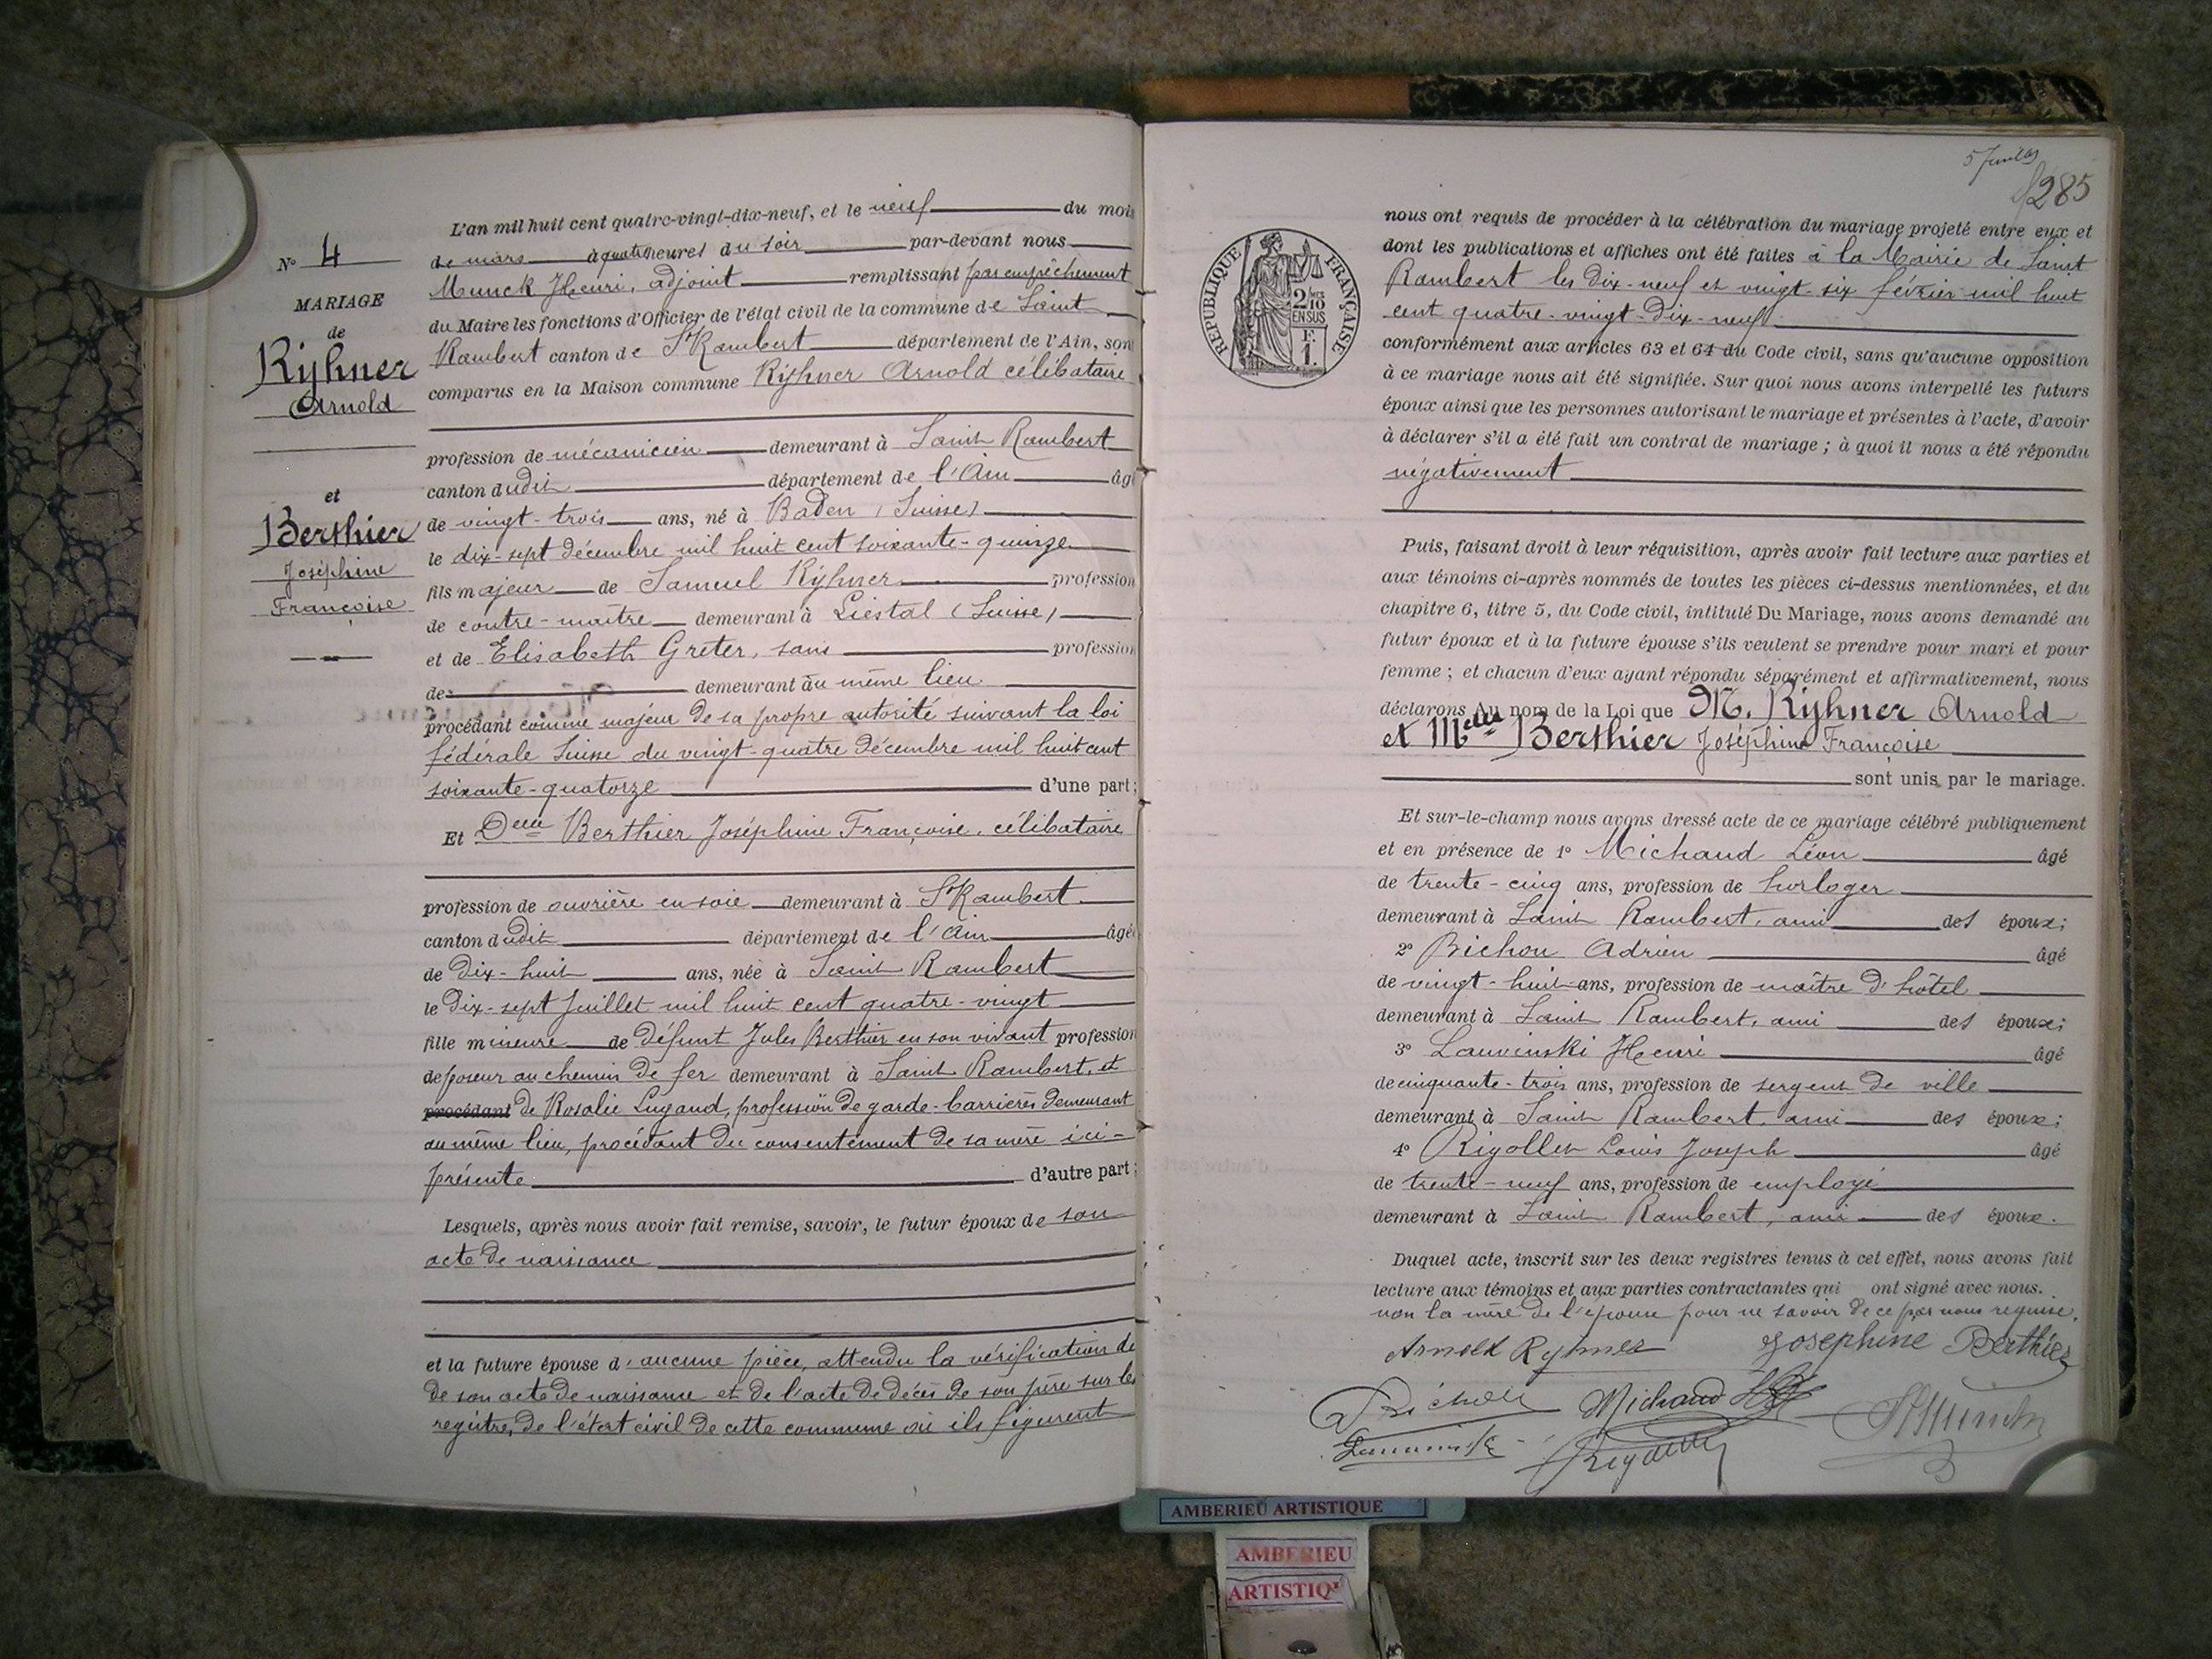 N° 4
MARIAGE
de
Rÿhner
Arnold
et
Berthier
Joséphine
Françoise
L'an mil huit cent quatre-vingt-dix-neuf, et le neuf du mois
de mars à quatre heures du soir par-devant nous
Munck Henri, adjoint remplissant par empêchement
du Maire les fonctions d'Officier de l'état civil de la commune de Saint
Rambert canton de St Rambert département de l'Ain, son
comparus en la Maison commune Rÿhner Arnold célibataire
profession de mécanicien demeurant à Saint Rambert
canton dudit département de l'Ain âg
de vingt-trois ans, né à Baden (Suisse)
le dix-sept décembre mil huit cent soixante-quinze
fils majeur de Samuel Rÿhner profession
de contre-maître demeurant à Liestal (Suisse)
et de Elisabeth Greter, sans profession
de demeurant au même lieu
procédant comme majeur de sa propre autorité suivant la loi
fédérale Suisse du vingt-quatre décembre mil huit cent
soixante-quatorze d'une part;
Et Delle Berthier Joséphine Françoise, célibataire
profession de ouvrière en soie demeurant à St Rambert
canton dudit département de l'Ain âgé
de dix-huit ans, née à Saint Rambert
le dix-sept juillet mil huit cent quatre-vingt
fille mineure de défunt Jules Berthier en son vivant profession
de poseur au chemin de fer demeurant à Saint Rambert, et
procédant de Rosalie Lugand, profession de garde-barrières demeurant
au même lieu, procédant du consentement de sa mère ici-
présente d'autre part;
Lesquels, après nous avoir fait remise, savoir, le futur époux de son
acte de naissance
et la future épouse d'aucune pièce, attendu la vérification de
de son acte de naissance et de l'acte de décès de son père sur les
registres de l'état civil de cette commune où ils figurent
285
RÉPUBLIQUE FRANÇAISE
2/10 EN SUS
F.
1.
nous ont requis de procéder à la célébration du mariage projeté entre eux et
dont les publications et affiches ont été faites à la Mairie de Saint
Rambert les dix-neuf et vingt-six février mil huit
cent quatre-vingt-dix-neuf
conformément aux articles 63 et 64 du Code civil, sans qu'aucune opposition
à ce mariage nous ait été signifiée. Sur quoi nous avons interpellé les futurs
époux ainsi que les personnes autorisant le mariage et présentes à l'acte, d'avoir
à déclarer s'il a été fait un contrat de mariage; à quoi il nous a été répondu
négativement
Puis, faisant droit à leur réquisition, après avoir fait lecture aux parties et
aux témoins ci-après nommés de toutes les pièces ci-dessus mentionnées, et du
chapitre 6, titre 5, du Code civil, intitulé Du Mariage, nous avons demandé au
futur époux et à la future épouse s'ils veulent se prendre pour mari et pour
femme; et chacun d'eux ayant répondu séparément et affirmativement, nous
déclarons Au nom de la Loi que M. Rÿhner Arnold
et Melle Berthier Joséphine Françoise
sont unis par le mariage.
Et sur-le-champ nous avons dressé acte de ce mariage célébré publiquement
et en présence de 1° Michaud Léon âgé
de trente-cinq ans, profession de horloger
demeurant à Saint Rambert, ami des époux;
2° Bichon Adrien âgé
de vingt-huit ans, profession de maître d'hôtel
demeurant à Saint Rambert, ami des époux;
3° Lauvinski Henri âgé
de cinquante-trois ans, profession de sergent de ville
demeurant à Saint Rambert, ami des époux;
4° Rigollet Louis Joseph âgé
de trente-neuf ans, profession de employé
demeurant à Saint Rambert, ami des époux.
Duquel acte, inscrit sur les deux registres tenus à cet effet, nous avons fait
lecture aux témoins et aux parties contractantes qui ont signé avec nous.
non la mère de l'épouse pour ne savoir de ce par nous requise.
Arnold Ryhner Joséphine Berthier
Bichon Michaud HMunck
AMBERIEU ARTISTIQUE
AMBERIEU
ARTISTIQ